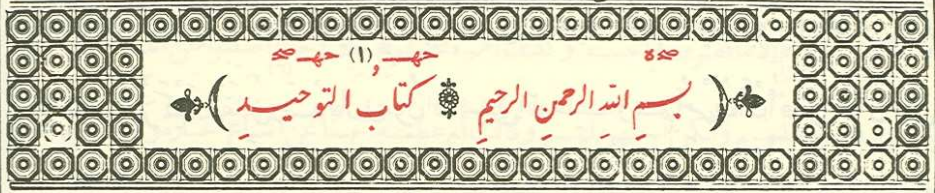 (١)
(بسمِ اللهِ الرحمنِ الرحيمِ كتابُ التوحيدِ)